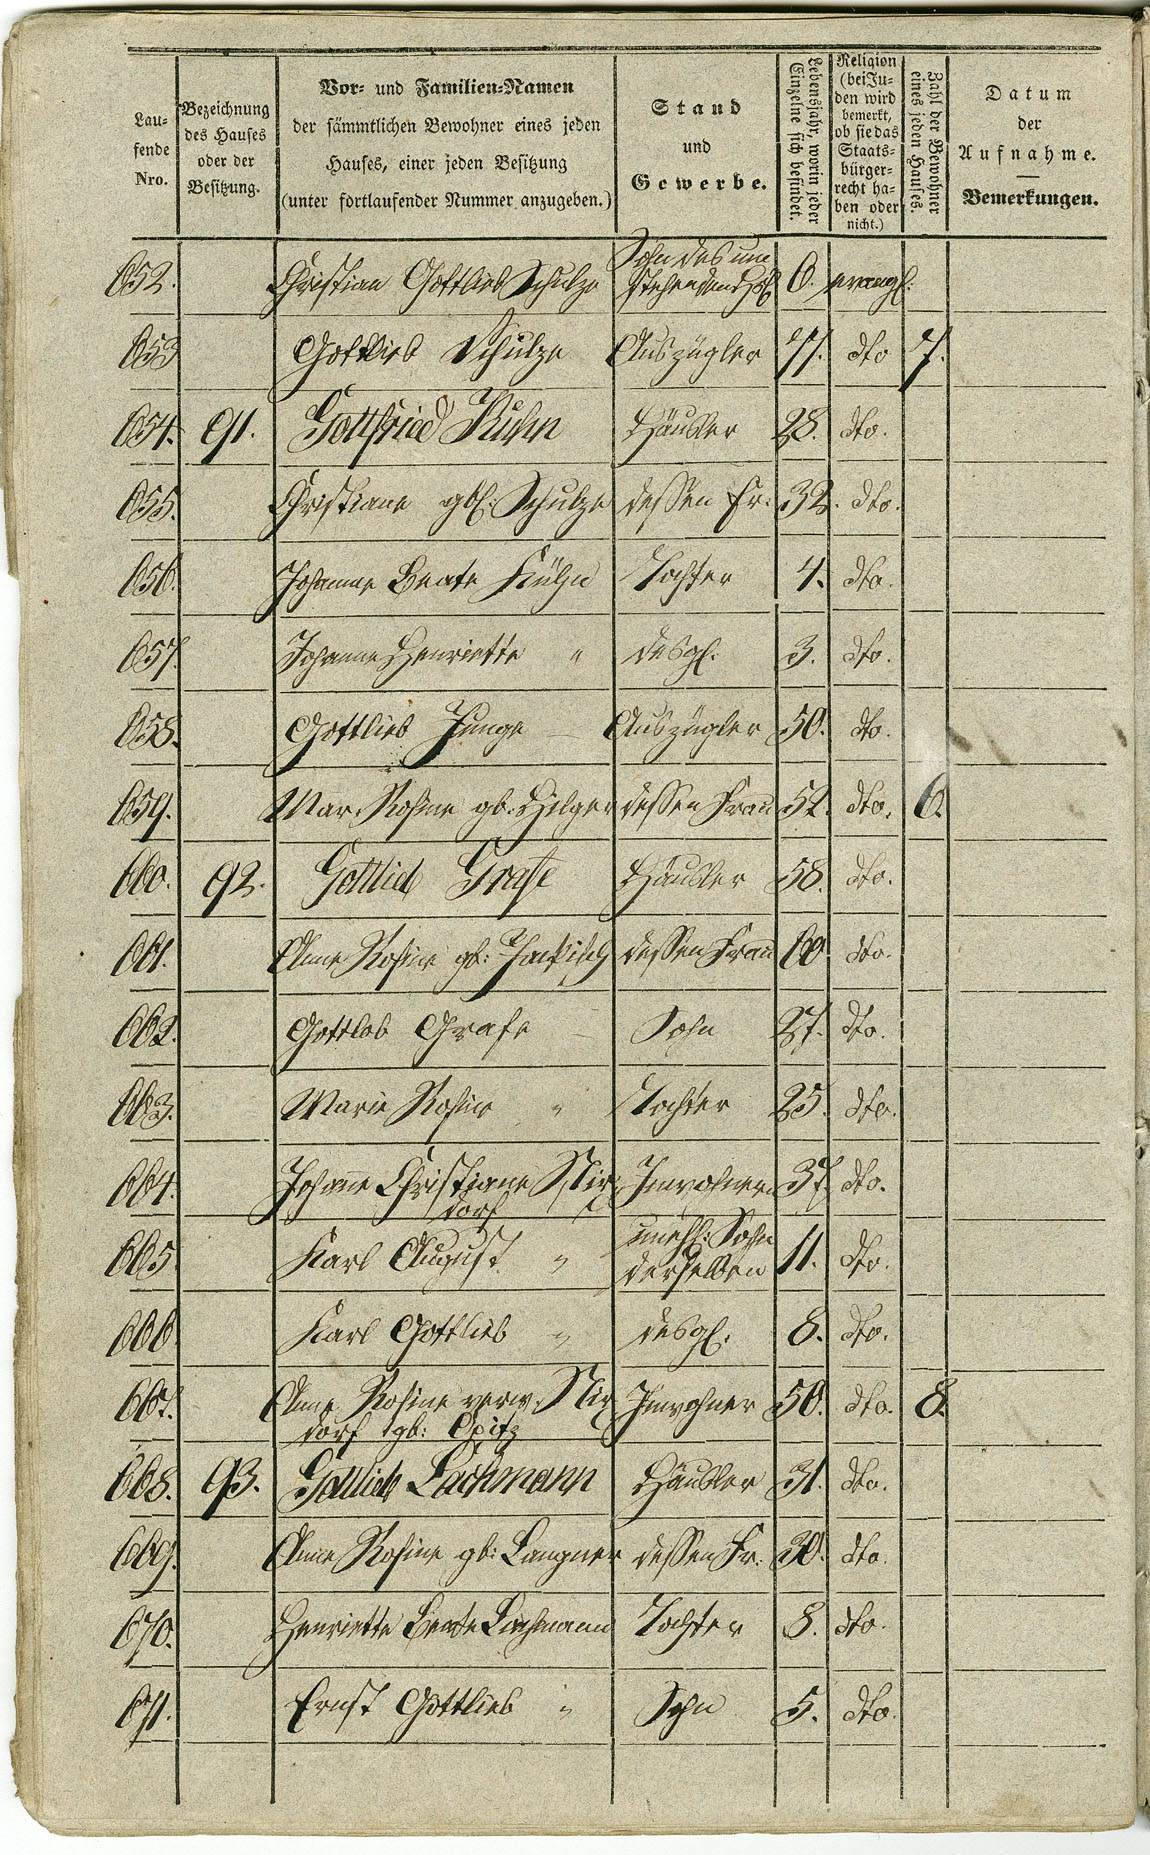 Lau-
fende
Nro.
Bezeichnung
des Hauses
oder der
Besitzung.
Vor- und Familien-Namen
der sämmtlichen Bewohner eines jeden
Hauses, einer jeden Besitzung
(unter fortlaufender Nummer anzugeben.)
Stand
und
Gewerbe.
Lebensjahr, worin jeder
Einzelne sich befindet.
Religion
(bei Ju-
den wird
bemerkt,
ob sie das
Staats-
bürger-
recht ha-
ben oder
nicht.)
Zahl der Bewohner
eines jeden Hauses.
Datum
der
Aufnahme.
Bemerkungen.
652. Christian Gottlieb Schulze Sohn des 6. evangl.
653 Gottlieb Schulze Auszügler 71. dto 7.
654. 91. Gottfried Kuhn Häusler 28. dto.
655. Christiane gb: Schulze dessen Fr: 32. dto.
656. Johanne Beate Kühn Tochter 4. dto.
657. Johanne Henriette " desgl. 3. dto.
658. Gottlieb Junge Auszügler 50. dto.
659. Mar. Rosine gb. Hilger dessen Frau 52. dto. 6.
660. 92. Gottlieb Grafe Häusler 58. dto.
661. Anne Rosine gb: dessen Frau 60. dto.
662. Gottlob Grafe Sohn 27. dto.
663. Marie Rosine " Tochter 25. dto.
664. Johanne Christiane Nix Inwohnerin 37. dto.
dorf
665 Karl August " unehl: Sohn
derselben 11. dto.
666 Karl Gottlieb " desgl. 8. dto.
667. Anne Rosine verw. Nix Inwohner 50. dto. 8.
dorf gb: Opitz
668. 93. Gottlieb Lachmann Häusler 31. dto.
669. Anne Rosine gb: Langner dessen Fr. 30. dto.
670. Henriette Beate Lachmann Tochter 8. dto.
671. Ernst Gottlieb " Sohn 5. dto.